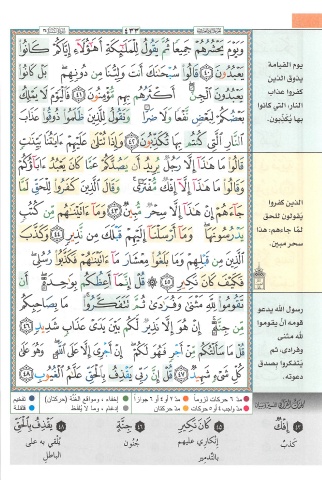 ٤٣٣
وَيَوْمَ يَحْشُرُهُمْ جَمِيعًا ثُمَّ يَقُولُ لِلْمَلَٰٓئِكَةِ أَهَٰٓؤُلَآءِ إِيَّاكُمْ كَانُوا۟
يَعْبُدُونَ ٤٠ قَالُوا۟ سُبْحَٰنَكَ أَنتَ وَلِيُّنَا مِن دُونِهِم ۖ بَلْ كَانُوا۟
يَعْبُدُونَ ٱلْجِنَّ ۖ أَكْثَرُهُم بِهِم مُّؤْمِنُونَ ٤١ فَٱلْيَوْمَ لَا يَمْلِكُ
بَعْضُكُمْ لِبَعْضٍ نَّفْعًا وَلَا ضَرًّا وَنَقُولُ لِلَّذِينَ ظَلَمُوا۟ ذُوقُوا۟ عَذَابَ
ٱلنَّارِ ٱلَّتِى كُنتُم بِهَا تُكَذِّبُونَ ٤٢ وَإِذَا تُتْلَىٰ عَلَيْهِمْ ءَايَٰتُنَا بَيِّنَٰتٍ
قَالُوا۟ مَا هَٰذَآ إِلَّا رَجُلٌ يُرِيدُ أَن يَصُدَّكُمْ عَمَّا كَانَ يَعْبُدُ ءَابَآؤُكُمْ
وَقَالُوا۟ مَا هَٰذَآ إِلَّآ إِفْكٌ مُّفْتَرًى ۚ وَقَالَ ٱلَّذِينَ كَفَرُوا۟ لِلْحَقِّ لَمَّا
جَآءَهُمْ إِنْ هَٰذَآ إِلَّا سِحْرٌ مُّبِينٌ ٤٣ وَمَآ ءَاتَيْنَٰهُم مِّن كُتُبٍ
يَدْرُسُونَهَا ۖ وَمَآ أَرْسَلْنَآ إِلَيْهِمْ قَبْلَكَ مِن نَّذِيرٍ ٤٤ وَكَذَّبَ
ٱلَّذِينَ مِن قَبْلِهِمْ وَمَا بَلَغُوا۟ مِعْشَارَ مَآ ءَاتَيْنَٰهُمْ فَكَذَّبُوا۟ رُسُلِى ۖ
فَكَيْفَ كَانَ نَكِيرِ ٤٥ قُلْ إِنَّمَآ أَعِظُكُم بِوَٰحِدَةٍ ۖ أَن
تَقُومُوا۟ لِلَّهِ مَثْنَىٰ وَفُرَٰدَىٰ ثُمَّ تَتَفَكَّرُوا۟ ۚ مَا بِصَاحِبِكُم
مِّن جِنَّةٍ ۚ إِنْ هُوَ إِلَّا نَذِيرٌ لَّكُم بَيْنَ يَدَىْ عَذَابٍ شَدِيدٍ ٤٦
قُلْ مَا سَأَلْتُكُم مِّنْ أَجْرٍ فَهُوَ لَكُمْ ۖ إِنْ أَجْرِىَ إِلَّا عَلَى ٱللَّهِ ۖ وَهُوَ عَلَىٰ
كُلِّ شَىْءٍ شَهِيدٌ ٤٧ قُلْ إِنَّ رَبِّى يَقْذِفُ بِٱلْحَقِّ عَلَّٰمُ ٱلْغُيُوبِ ٤٨
يوم القيامة
يذوق الذين
كفروا عذاب
النار، التي كانوا
بها يُكذّبون.
الذين كفروا
يقولون للحق
لمّا جاءهم: هذا
سحر مبين.
رسول الله يدعو
قومه أنْ يقوموا
لله مثنى
وفرادى، ثم
يتفكروا بصدق
دعوته.
مدّ ٦ حركات لزوماً مدّ ٢ أو ٤ أو ٦ جوازاً إخفاء، ومواقع الغُنَّة (حركتان) تفخيم
مدّ واجب ٤ أو ٥ حركات مدّ حركتان إدغام، وما لا يُلفَظ قلقلة
٤٣ إِفْكٌ
كذبٌ
٤٥ كَانَ نَكِيرِ
إنكاري عليهم
بالتدمير
٤٦ جِنَّةٍ
جُنون
٤٨ يَقْذِفُ بِالْحَقِّ
يُلقي به على
الباطل